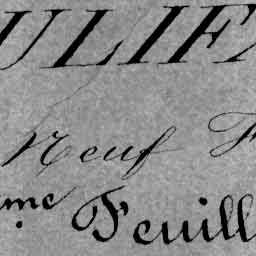 ULIF
Neuf F
me Feuill